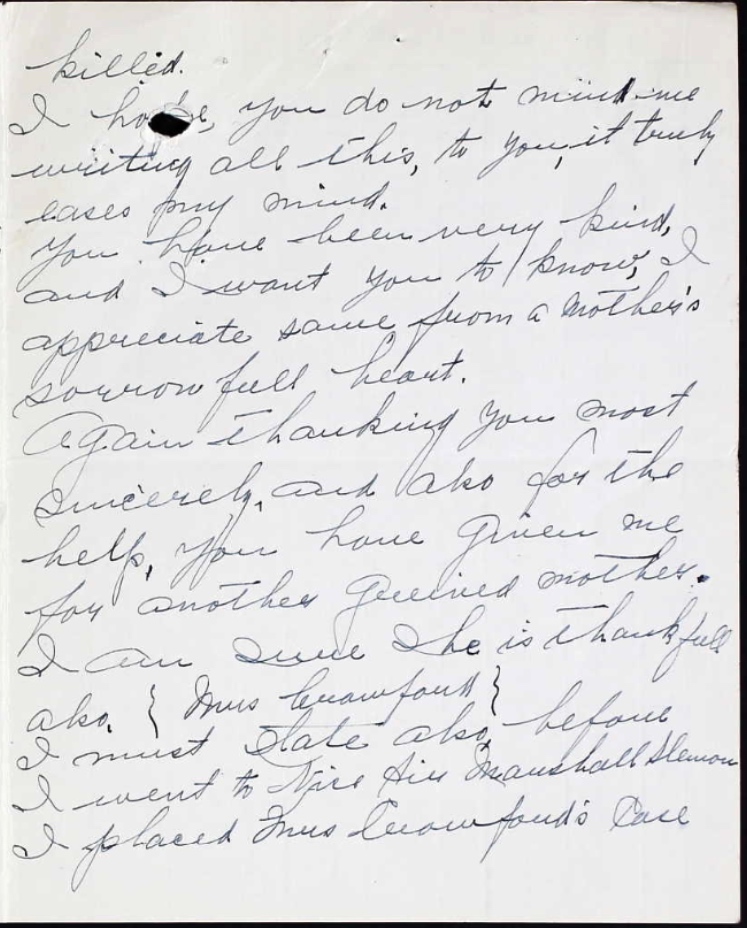 killed.
I hope, you do not mind me
writing all this, to you, it truly
eases my mind.
You have been very kind,
and I want you to know, I
appreciate same from a Mother's
sorrow full heart.
Again thanking you most
sincerely, and also for the
help, you have given me
for another grieved mother.
I am sure she is thankfull
also. { Mrs Crawford }
I must state also, before
I went to Vice Air Marshall Slemon
I placed Mrs Crawford's Case